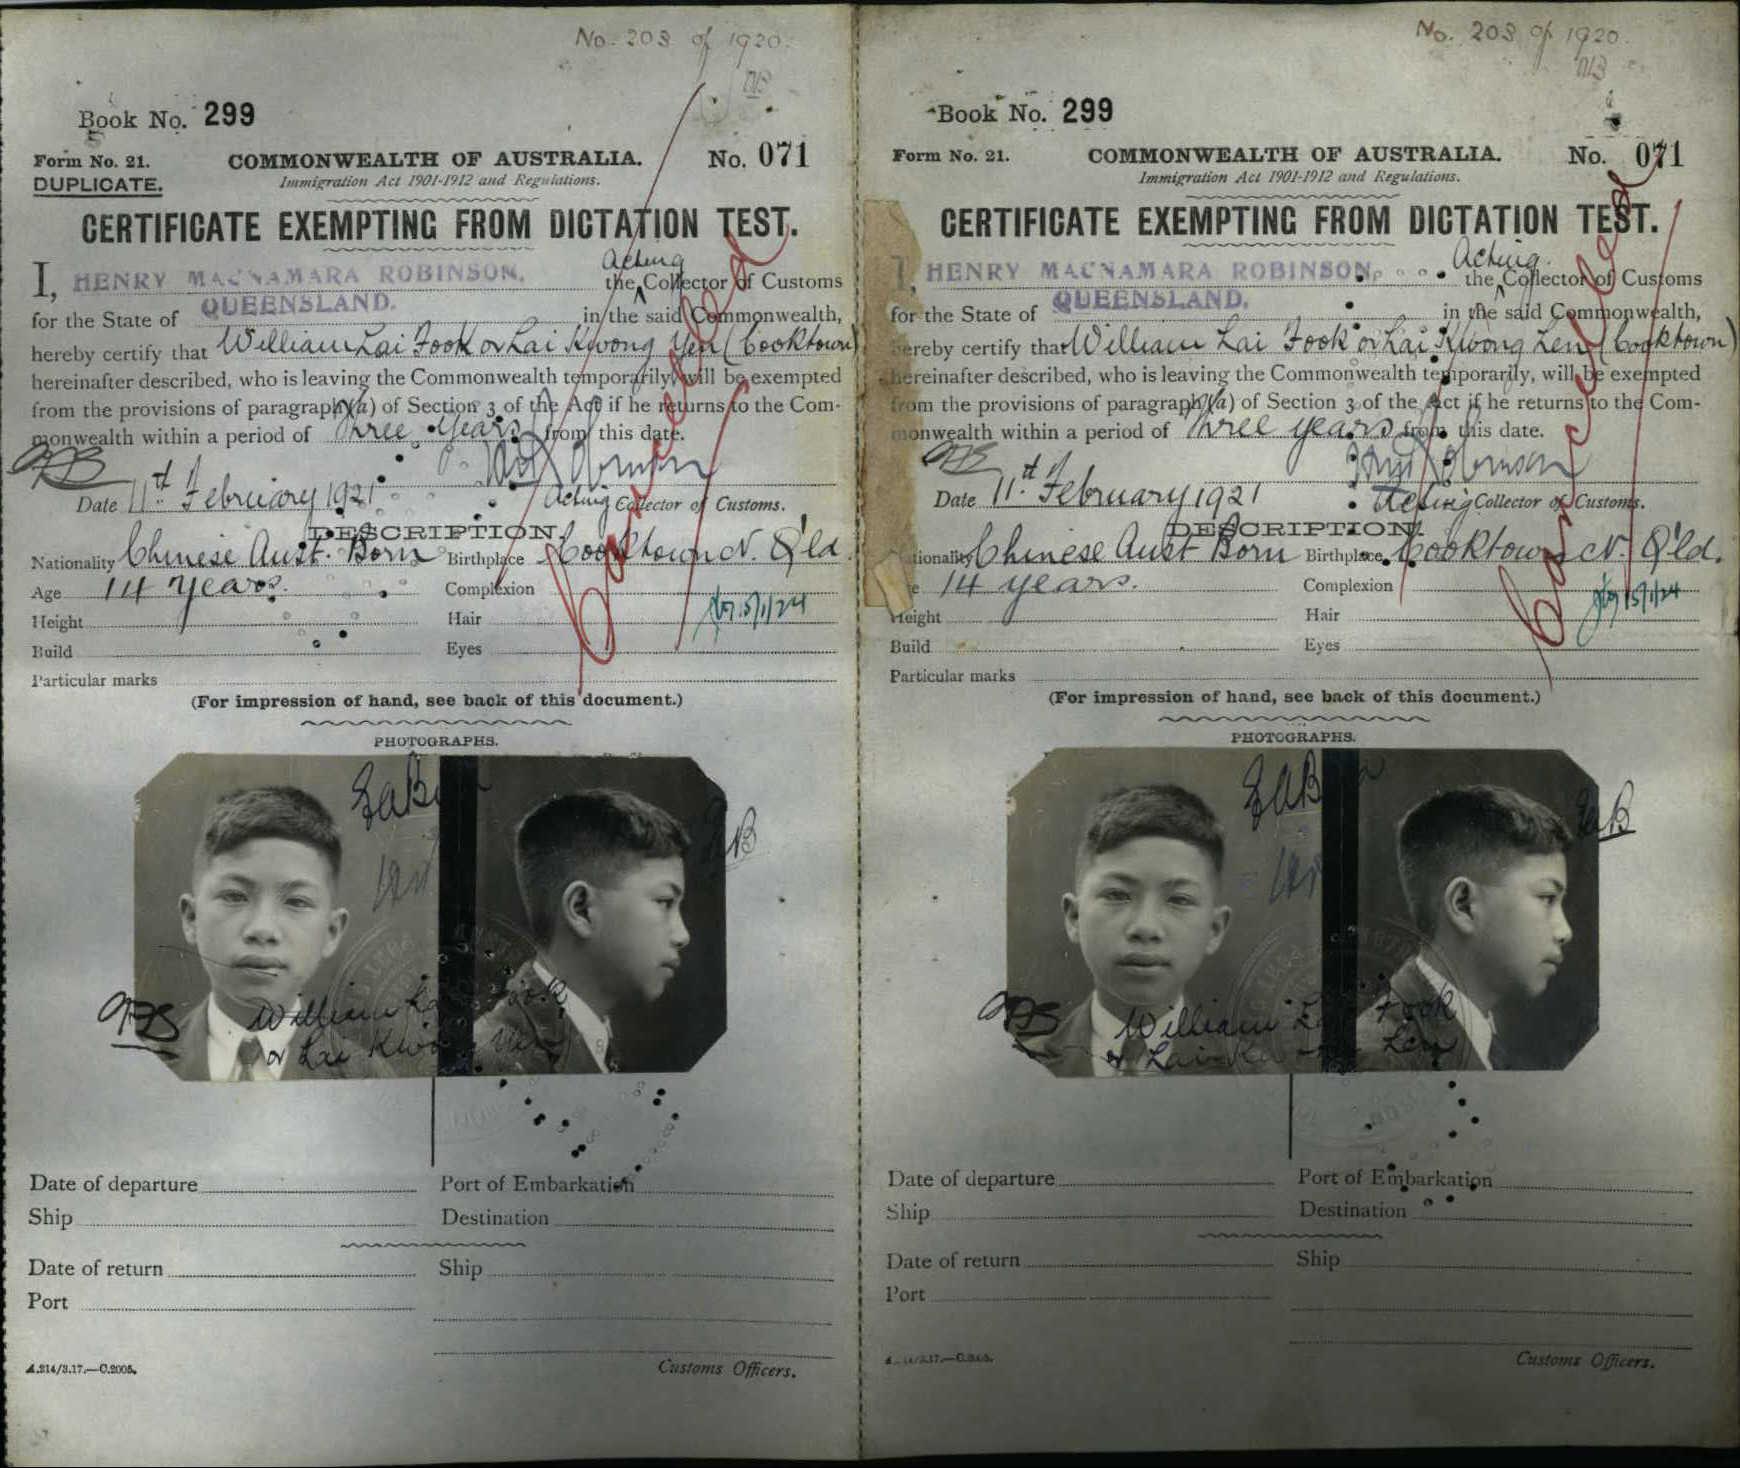 No. 203 of 1920.
Book No. 299
Form No. 21.
DUPLICATE.
COMMONWEALTH OF AUSTRALIA.
No. 071
Immigration Act 1901-1912 and Regulations.
CERTIFICATE EXEMPTING FROM DICTATION TEST.
Acting
I, HENRY MACNAMARA ROBINSON, the Collector of Customs
for the State of QUEENSLAND. in the said Commonwealth,
hereby certify that William Lai Fook or Lai Kwong Yen (Cooktown)
hereinafter described, who is leaving the Commonwealth temporarily, will be exempted
from the provisions of paragraph (a) of Section 3 of the Act if he returns to the Com-
monwealth within a period of Three Years from this date.
Date 11th February 1921 Acting Collector of Customs.
Cancelled
DESCRIPTION.
Nationality Chinese Aust. Born Birthplace Cooktown N. Q'ld.
Age 14 years. Complexion
Height Hair
15/1/24
Build Eyes
Particular marks
(For impression of hand, see back of this document.)
PHOTOGRAPHS.
William Lai Fook
or Lai Kwong Yen
Date of departure Port of Embarkation
Ship Destination
Date of return Ship
Port
A.214/3.17.—C.2005. Customs Officers.
No. 203 of 1920.
Book No. 299
Form No. 21.
COMMONWEALTH OF AUSTRALIA.
No. 071
Immigration Act 1901-1912 and Regulations.
CERTIFICATE EXEMPTING FROM DICTATION TEST.
Acting
I, HENRY MACNAMARA ROBINSON, the Collector of Customs
for the State of QUEENSLAND. in the said Commonwealth,
hereby certify that William Lai Fook or Lai Kwong Len (Cooktown)
hereinafter described, who is leaving the Commonwealth temporarily, will be exempted
from the provisions of paragraph (a) of Section 3 of the Act if he returns to the Com-
monwealth within a period of Three years from this date.
Date 11th February 1921 Acting Collector of Customs.
Cancelled
DESCRIPTION.
Nationality Chinese Aust Born Birthplace Cooktown N. Q'ld.
14 years. Complexion
Height Hair
15/1/24
Build Eyes
Particular marks
(For impression of hand, see back of this document.)
PHOTOGRAPHS.
William Lai Fook
or Lai Kwong Len
Date of departure Port of Embarkation
Ship Destination
Date of return Ship
Port
Customs Officers.